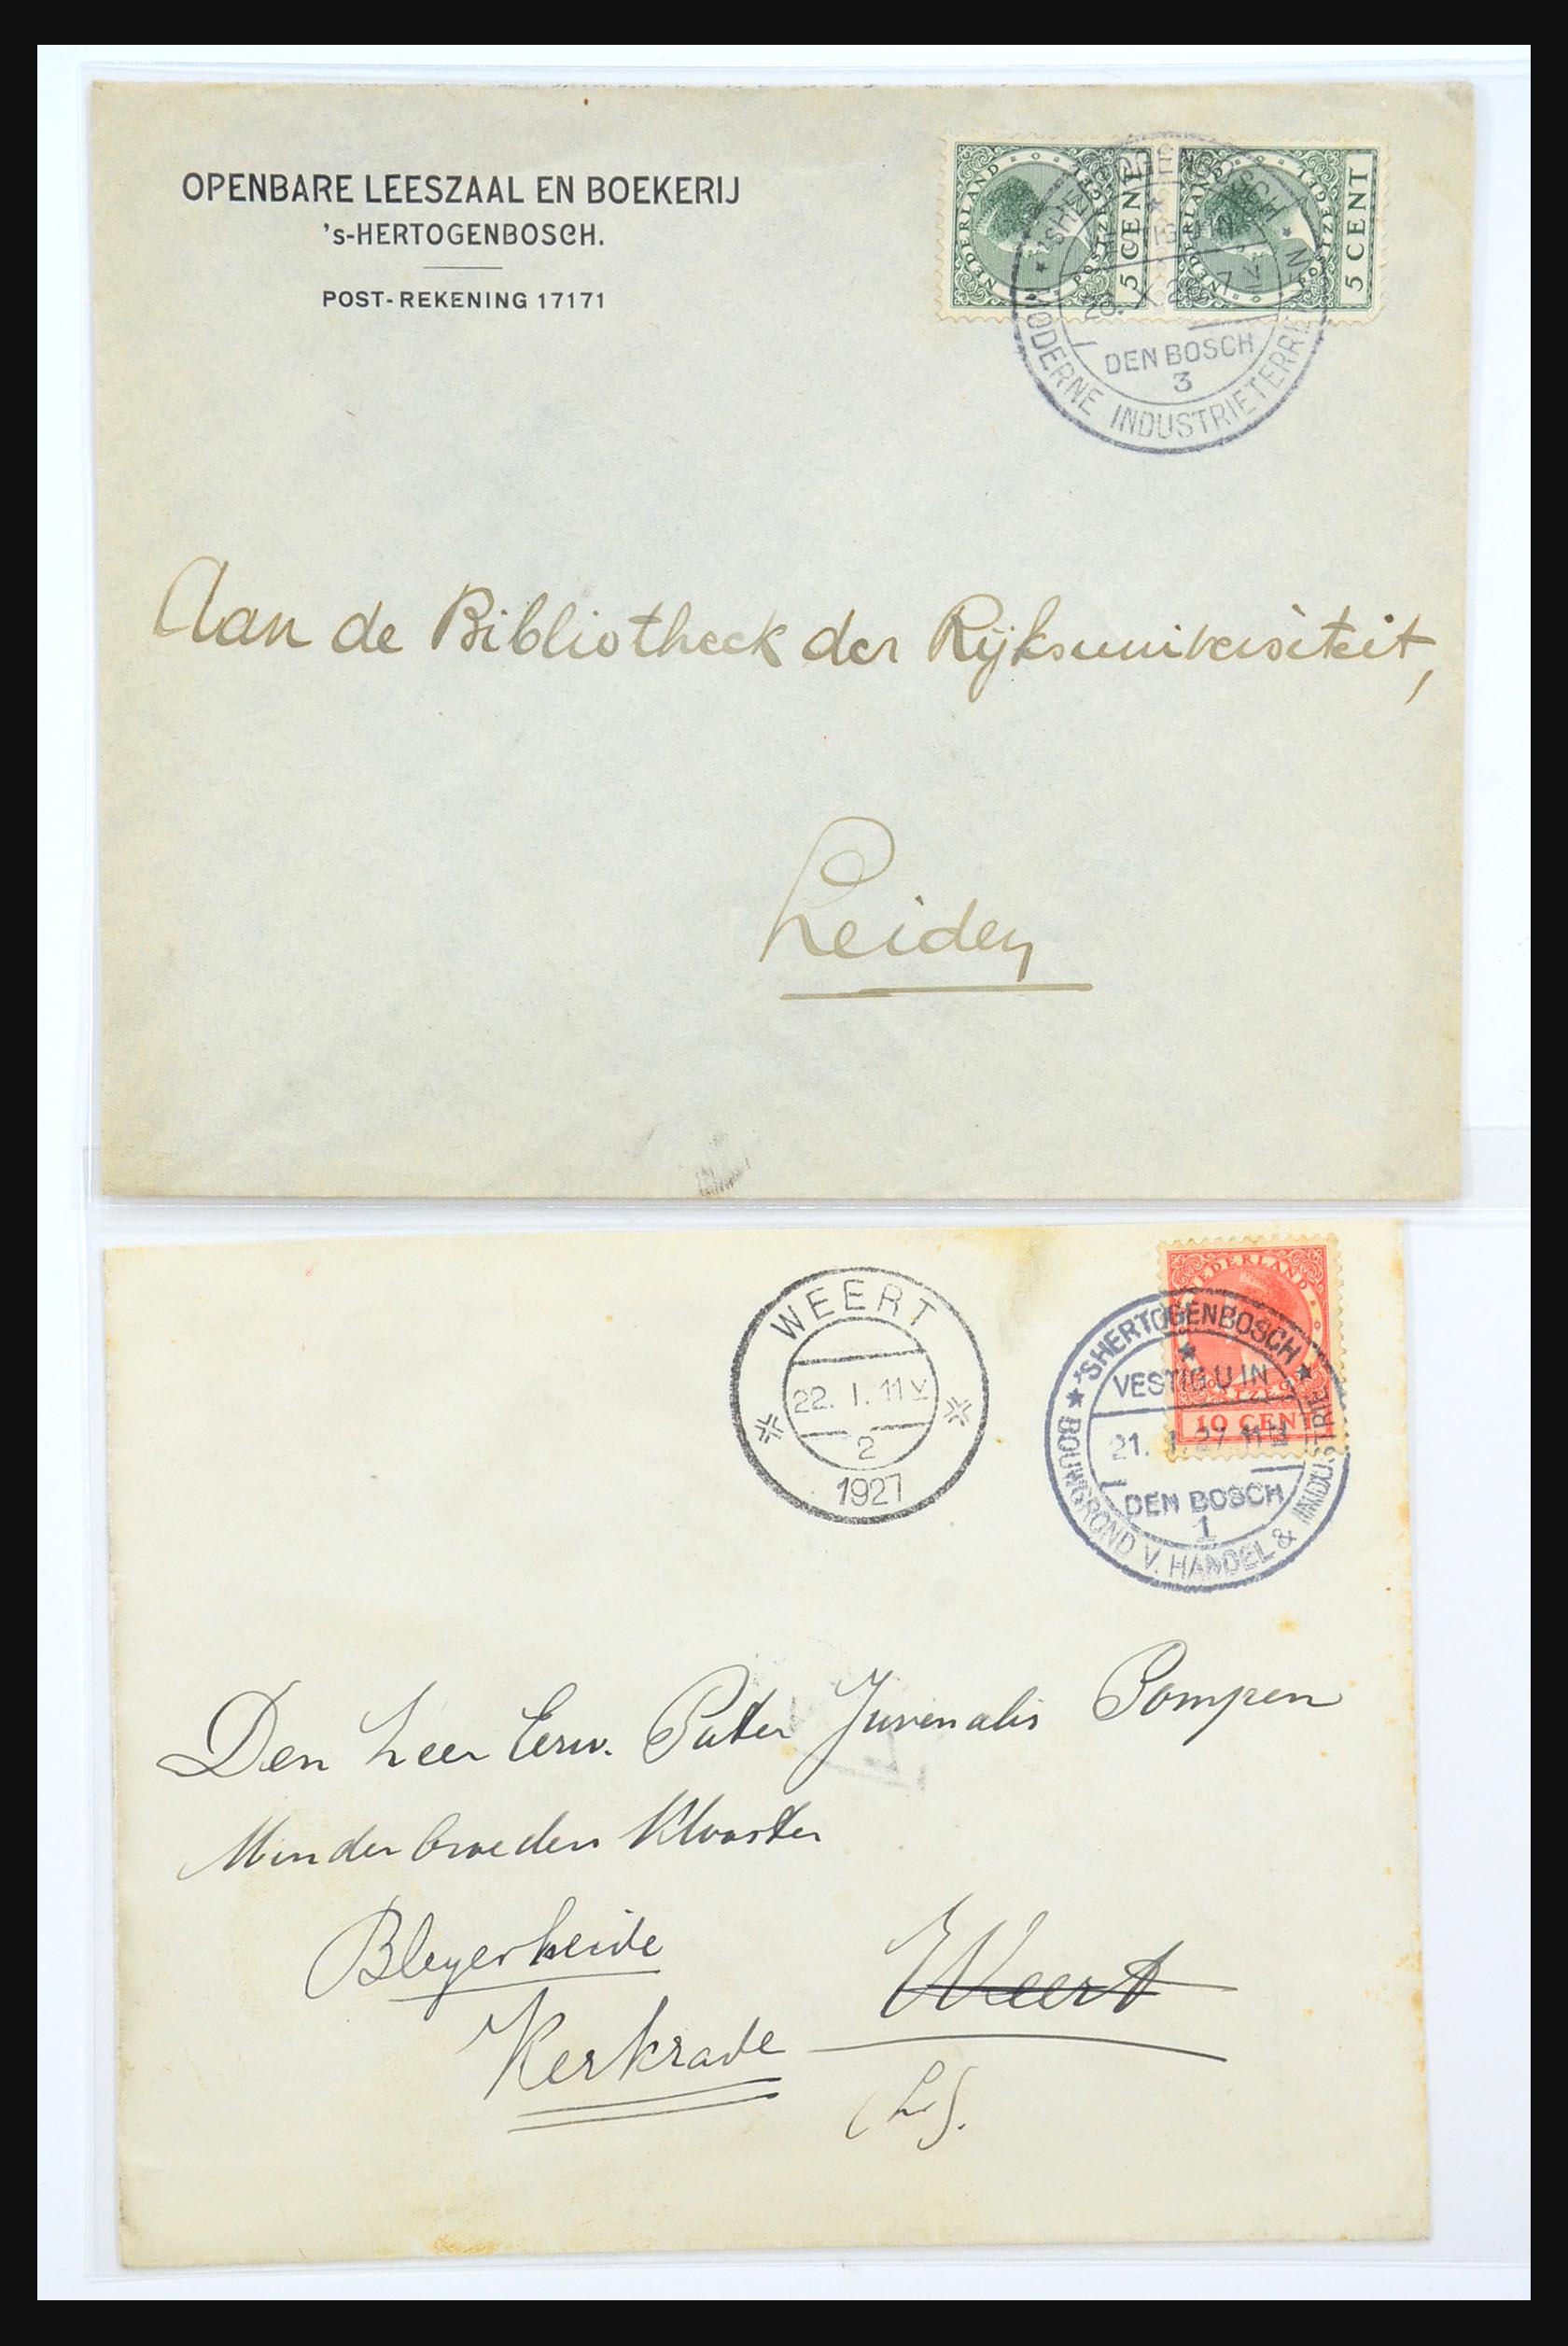 OPENBARE LEESZAAL EN BOEKERIJ
's-HERTOGENBOSCH.
POST-REKENING 17171
NEDERLAND
POSTZEGEL
5 CENT
NEDERLAND
POSTZEGEL
5 CENT
DEN BOSCH
3
MODERNE INDUSTRIETERREINEN
Aan de Bibliotheek der Rijksuniversiteit,
Leiden
WEERT
22. I. 11V
2
1927
NEDERLAND
10 CENT
'SHERTOGENBOSCH
VESTIG U IN
21. I. 27 11V
DEN BOSCH
1
BOUWGROND V. HANDEL & INDUSTRIE
Den Heer Eerw. Pater Juvenalis Pompen
Minderbroeders Klooster
Bleyerheide
Weert
Kerkrade
(L).